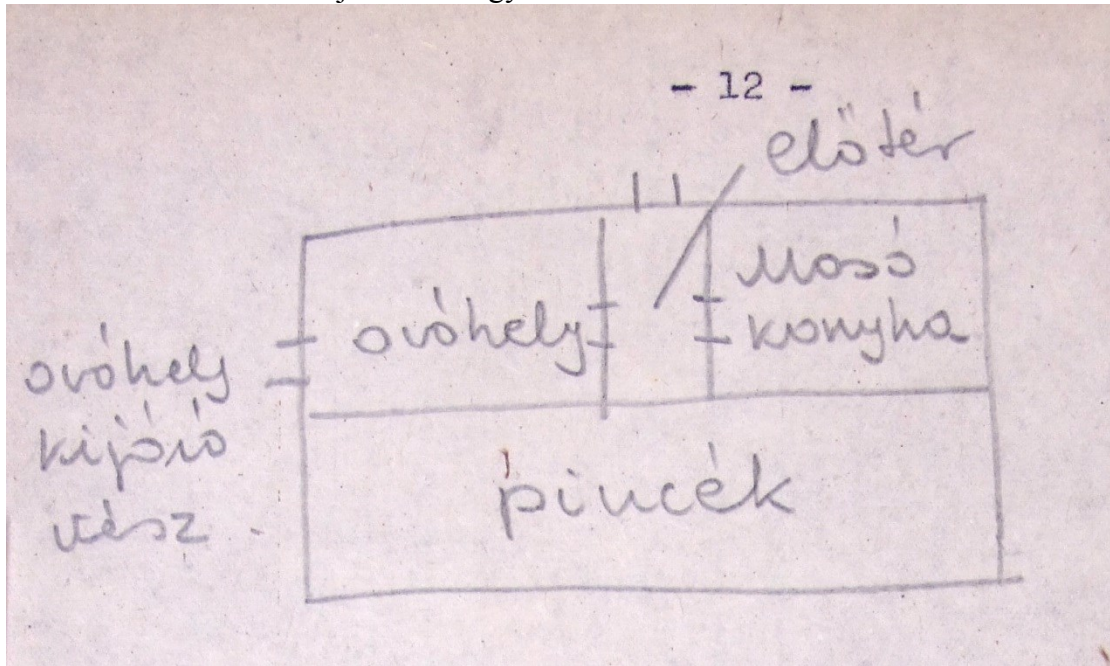 - 12 -
előtér
óvóhely
Mosó
konyha
óvóhely
kijáró
vész
pincék